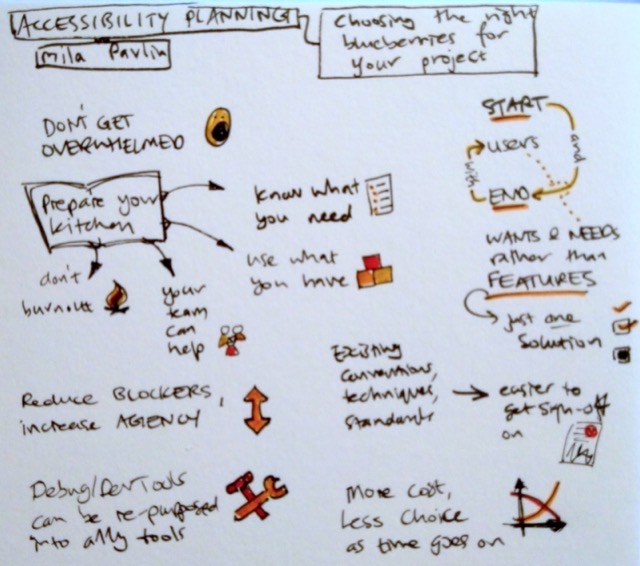 ACCESSIBILITY PLANNING
Mila Pavlin
Choosing the right
blueberries for
your project
DON'T GET
OVERWHELMED
Prepare your
kitchen
don't
burnout
your
team
can
help
know what
you need
use what
you have
START
and
users
with
END
WANTS & NEEDS
rather than
FEATURES
just one
solution
Reduce BLOCKERS,
increase AGENCY
Existing
conventions,
techniques,
standards
easier to
get sign-off
on
Debug/DevTools
can be re-purposed
into a11y tools
More cost,
Less choice
as time goes on